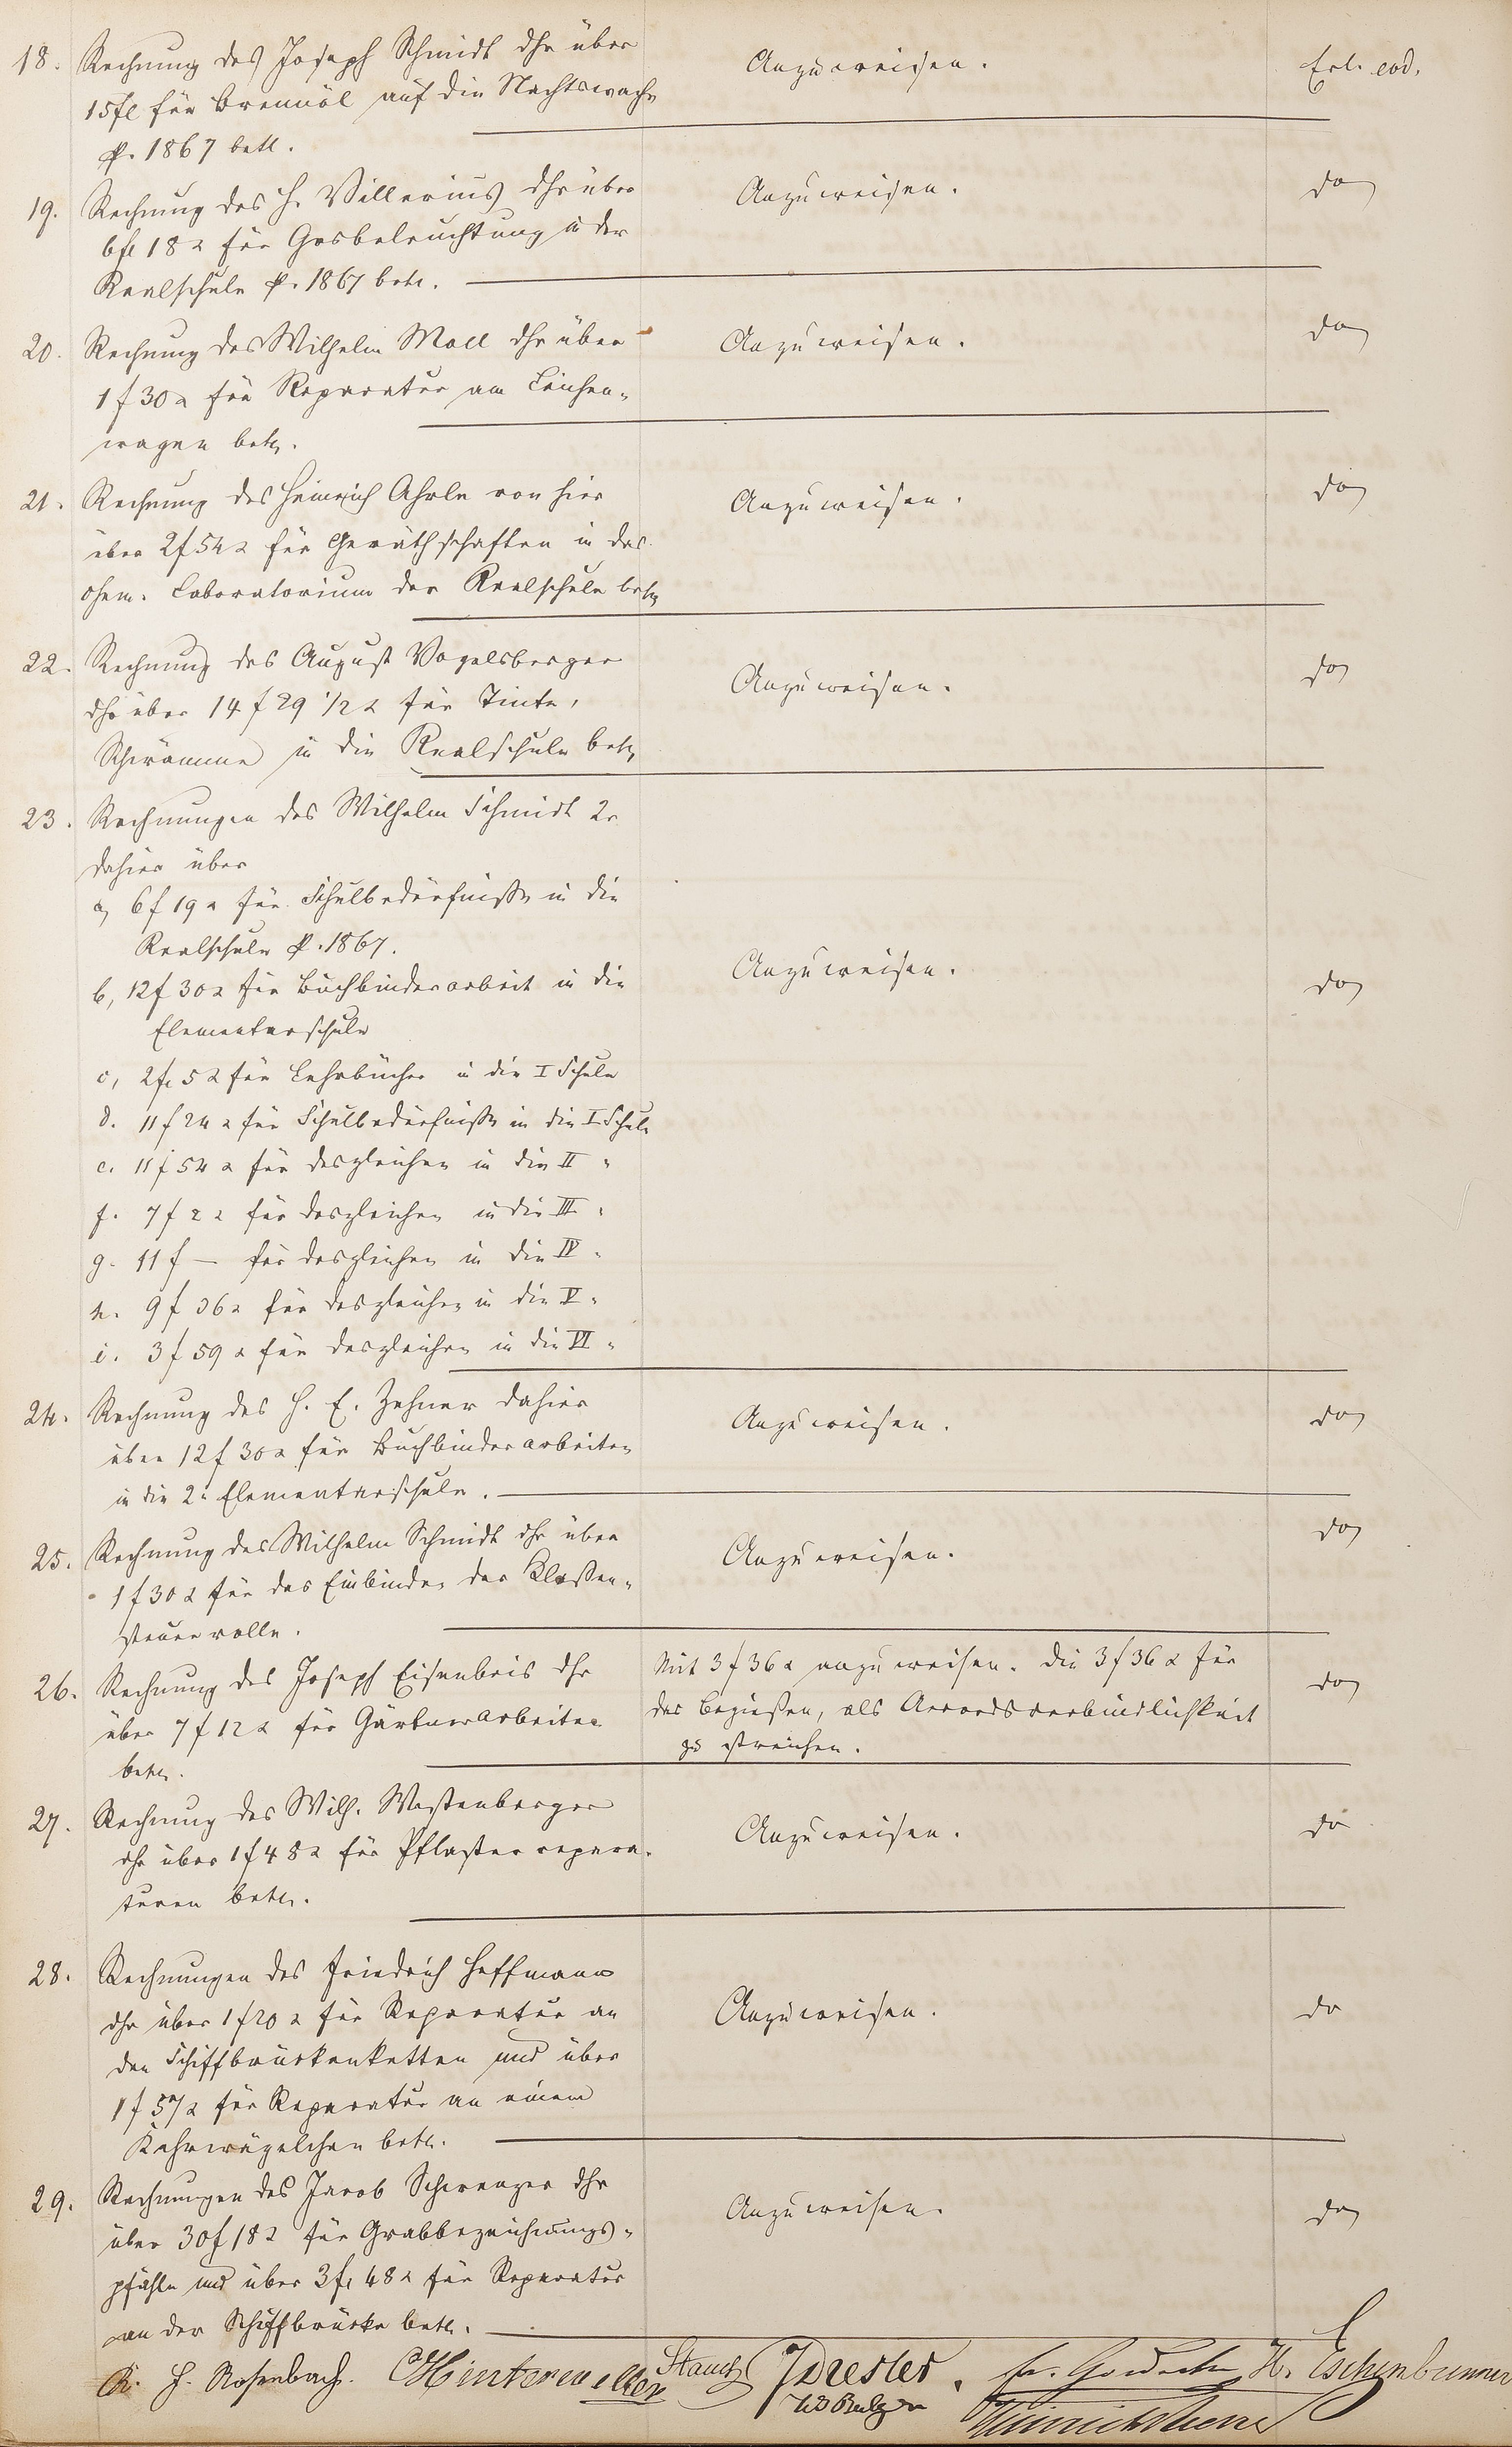 18. Rechnung des Joseph Schmidt dhr über
15 fl für Brennöl auf die Nachtswache
p. 1867 betr.
Anzuweisen.
Erl. eod.
19. Rechnung des H. Villerius dhr über
6 fl 18 x für Gasbeleuchtung in der
Realschule p. 1867 betr.
Anzuweisen.
do
20. Rechnung des Wilhelm Moll dhr über
1 f 30 x für Reparatur am Leichen-
wagen betr.
Anzuweisen.
do
21. Rechnung des Heinrich Ahrle von hier
über 2 f 54 x für Geräthschaften in das
chem. Laboratorium der Realschule betr
Anzuweisen.
do
22. Rechnung des August Vogelsberger
dhr über 14 f 29 1/2 x für Tinte,
Schwämme in die Realschule betr
Anzuweisen.
do
23. Rechnungen des Wilhelm Schmidt 2r
dahier über
a, 6 f 19 x für Schulbedürfniße in die
Realschule p. 1867.
b, 12 f 30 x für Buchbinderarbeit in die
Elementarschule
c, 2 f 5 x für Lehrbücher in die I Schule
d. 11 f 24 x für Schulbedürfniße in die I Schule
e. 11 f 54 x für desgleichen in die II "
f. 7 f 2 x für desgleichen in die III "
g. 11 f — für desgleichen in die IV "
h. 9 f 36 x für desgleichen in die V "
i. 3 f 59 x für desgleichen in die VI "
Anzuweisen.
do
24. Rechnung des H. E. Zehner dahier
über 12 f 30 x für Buchbinderarbeiten
in die 2. Elementarschule.
Anzuweisen.
do
25. Rechnung des Wilhelm Schmidt dhr über
1 f 30 x für das Einbinden der Klaßen-
steuerrolle.
Anzuweisen.
do
26. Rechnung des Joseph Eisenbeis dhr
über 7 f 12 x für Gärtnerarbeiten
betr.
Mit 3 f 36 x anzuweisen. Die 3 f 36 x für
das Begießen, als Accordsverbindlichkeit
zu streichen.
do
27. Rechnung des Wilh. Westenberger
dhr über 1 f 48 x für Pflasterrepara-
turen betr.
Anzuweisen.
do
28. Rechnungen des Friedrich Hoffmann
dhr über 1 f 20 x für Reparatur an
den Schiffbrückenketten und über
1 f 57 x für Reparatur an einem
Kehrwägelchen betr.
Anzuweisen.
do
29. Rechnungen des Jacob Schwenzer dhr
über 30 f 18 x für Grabbezeichnungs-
pfähle und über 3 f 48 x für Reparatur
an der Schiffbrücke betr.
Anzuweisen.
do
H. Rosenbach. Hinterwäller Stauch Drester. H. Eschenbrenner